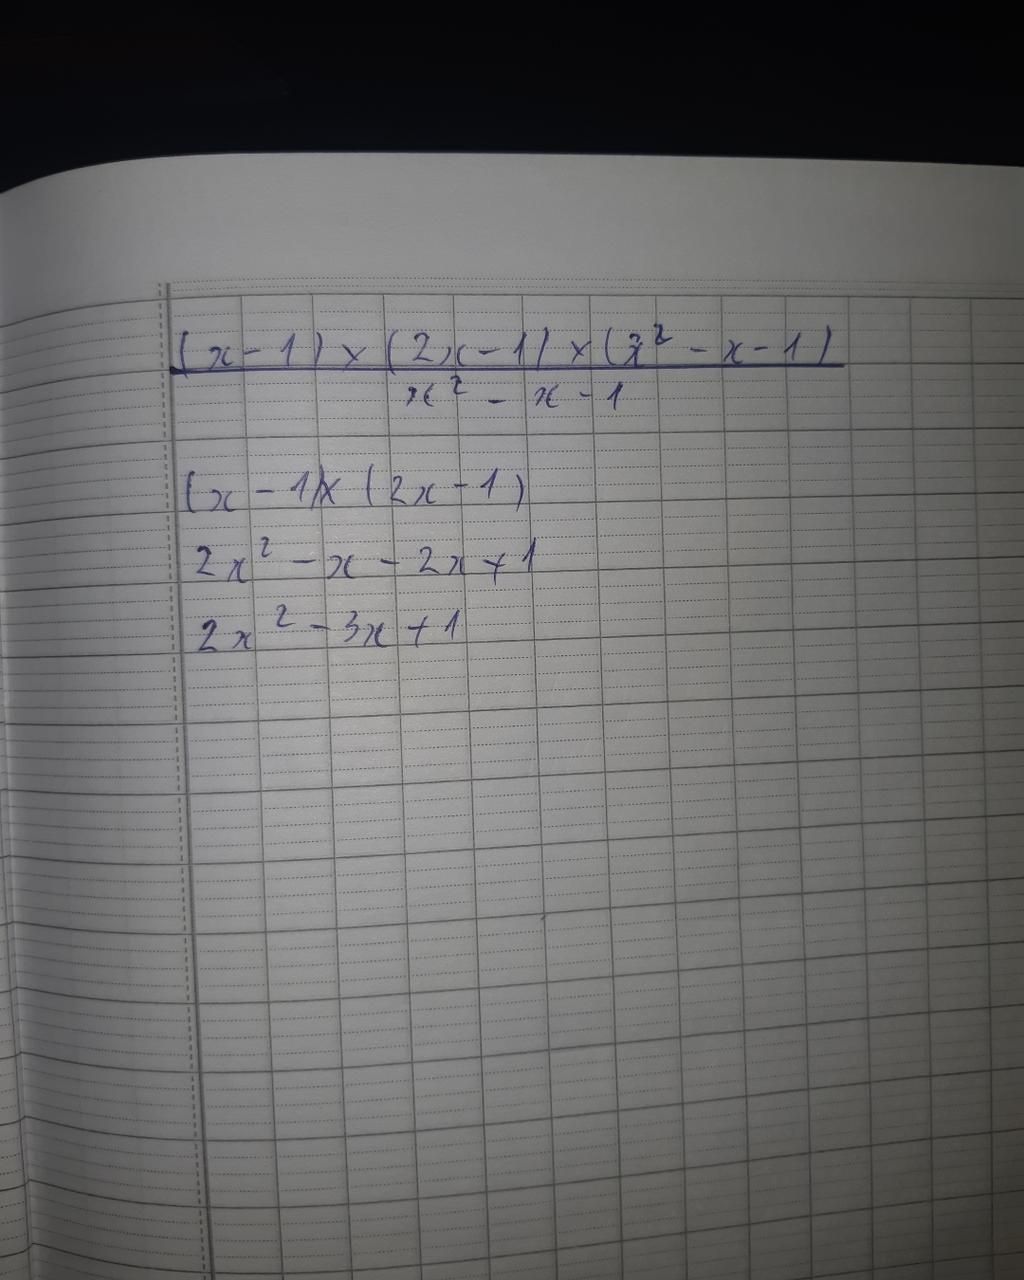 (x-1) × (2x-1) × (x² - x - 1)
x² - x - 1
(x - 1) × (2x - 1)
2x² - x - 2x + 1
2x² - 3x + 1